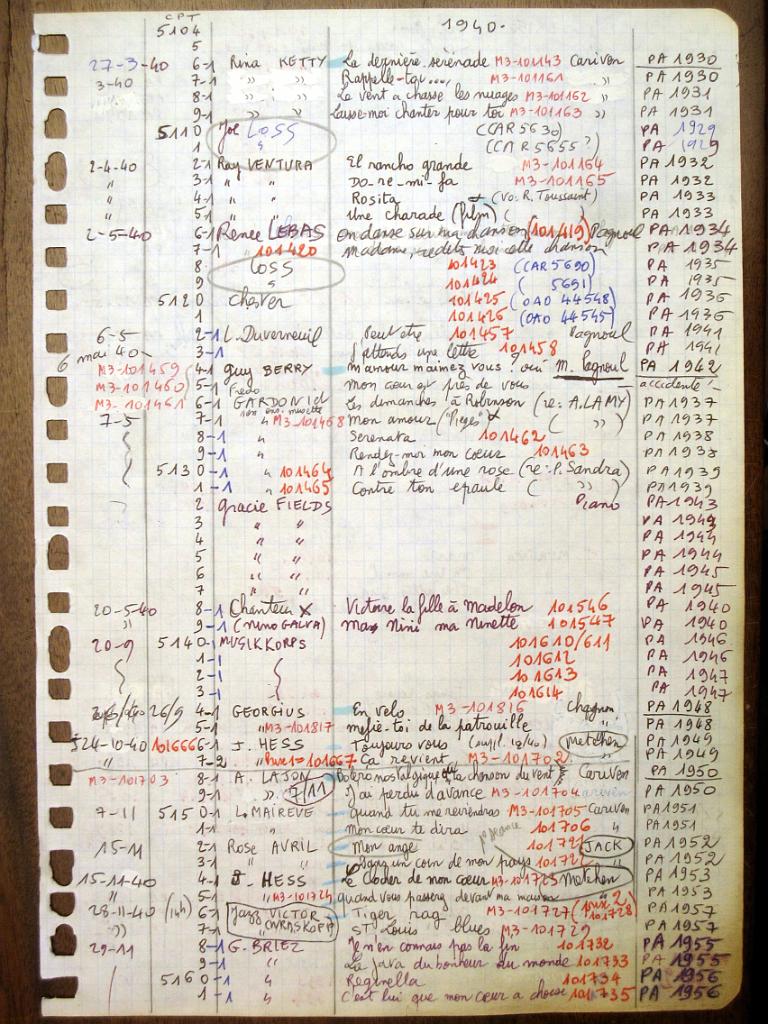 CPT 1940.
5104
5
27-3-40 6-1 Rina KETTY La dernière sérénade M3-101143 Cariven PA 1930
3-40 7-1 " " Rappelle-toi..., M3-101161 " PA 1930
8-1 " " Le vent a chassé les nuages M3-101162 " PA 1931
9-1 " " Laisse-moi chanter pour toi M3-101163 " PA 1931
5110 Joe LOSS (CAR 5630) PA 1929
1 " (CAR 5655?) PA 1929
2-4-40 2-1 Ray VENTURA El rancho grande M3-101164 PA 1932
" 3-1 " " Do-re-mi-fa M3-101165 PA 1932
" 4-1 " " Rosita (vo. R. Toussaint) PA 1933
" 5-1 " " Une charade (film) ( PA 1933
2-5-40 6-1 Renee LEBAS on danse sur ma chanson (101419) Pagnoul PA 1934
7-1 " 101420 Madame, redets moi cette chanson PA 1934
8 LOSS 101423 (CAR 5690) PA 1935
9 " 101424 ( 5691) PA 1935
5120 Chester 101425 (OAO 44548) PA 1936
1 101426 (OAO 44545) PA 1936
6-5 2-1 L. Duverneuil Peut être 101457 Pagnoul PA 1941
6 mai 40 3-1 J'attends une lettre 101458 PA 1941
M3-101459 4-1 Guy BERRY m'amour m'aimez vous? oui M. Pagnoul PA 1942
M3-101460 5-1 " Mon cœur est près de vous accidenté!
M3-101461 6-1 Fredo GARDONI Les dimanches à Robinson (re: A. LAMY) PA 1937
7-5 7-1 " M3-101468 Mon amour ("Pièges") ( ") PA 1937
8-1 " Serenata 101462 PA 1938
9-1 " Rendez-moi mon coeur 101463 PA 1938
5130-1 " 101464 A l'ombre d'une rose (re: P. Sandra) PA 1939
1-1 " 101465 Contre ton epaule ( ") PA 1939
2 Gracie FIELDS Piano PA 1943
3 " " PA 1943
4 " " PA 1944
5 " " PA 1944
6 " " PA 1945
7 " " PA 1945
20-5-40 8-1 Chanteux Victoire la fille à Madelon 101546 PA 1940
" 9-1 (NINO GALVA) Nini ma Ninette 101547 PA 1940
20-9 5140-1 MUSIKKORPS 101610/611 PA 1946
1-1 101612 PA 1946
2-1 101613 PA 1947
3-1 101614 PA 1947
26/9 4-1 GEORGIUS En velo M3-101816 Chagnon PA 1948
5-1 " M3-101817 méfie-toi de la patrouille " PA 1948
J24-10-40 101666 6-1 J. HESS Toujours vous (suppl. 12/40) Metchen PA 1949
" 7-2 " Prise1=101667 Ça revient, M3-101702 " PA 1949
M3-101703 8-1 A. LAJON Boléro nostalgique ou la chanson du vent Cariven PA 1950
9-1 " 7/11 J'ai perdu d'avance M3-101704 cariven PA 1950
7-11 5150-1 L. MAIREVE quand tu me reviendras M3-101705 Cariven PA 1951
1-1 " Mon cœur te dira 101706 " PA 1951
15-11 2-1 Rose AVRIL Mon ange 101721 JACK PA 1952
3-1 " " Dans un coin de mon pays 101722 " PA 1952
15-11-40 4-1 J. HESS Le clocher de mon cœur M3-101723 Metchen PA 1953
" 5-1 " M3-101724 quand vous passerez devant ma maison PA 1953
28-11-40 (14h) 6-1 Jazz VICTOR Tiger rag M3-101727 (prise 2) 101728 PA 1957
" 7-1 St Louis blues M3-101729 PA 1957
29-11 8-1 G. BRIEZ Je n'en connais pas la fin 101732 PA 1955
9-1 " La java du bonheur du monde 101733 PA 1955
5160-1 " Reginella 101734 PA 1956
1-1 " C'est lui que mon cœur a choisi 101735 PA 1956